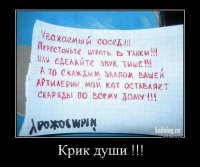 Уважаемый сосед!!!
Перестаньте играть в танки!!!
Или сделайте звук тише!!!
А то с каждым залпом вашей
артилерии, мой кот оставляет
снаряды по всему дому!!!
kadobg.ru
Крик души !!!